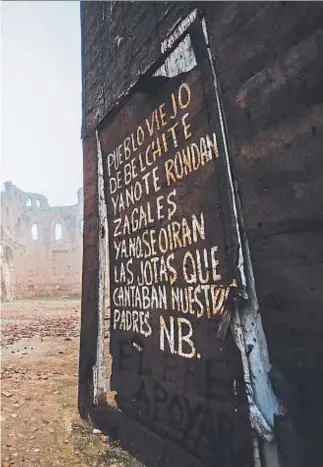 PUEBLO VIEJO
DE BELCHITE
YA NO TE RONDAN
ZAGALES
YA NO SE OIRAN
LAS JOTAS QUE
CANTABAN NUESTROS
PADRES N.B.
APOYAR